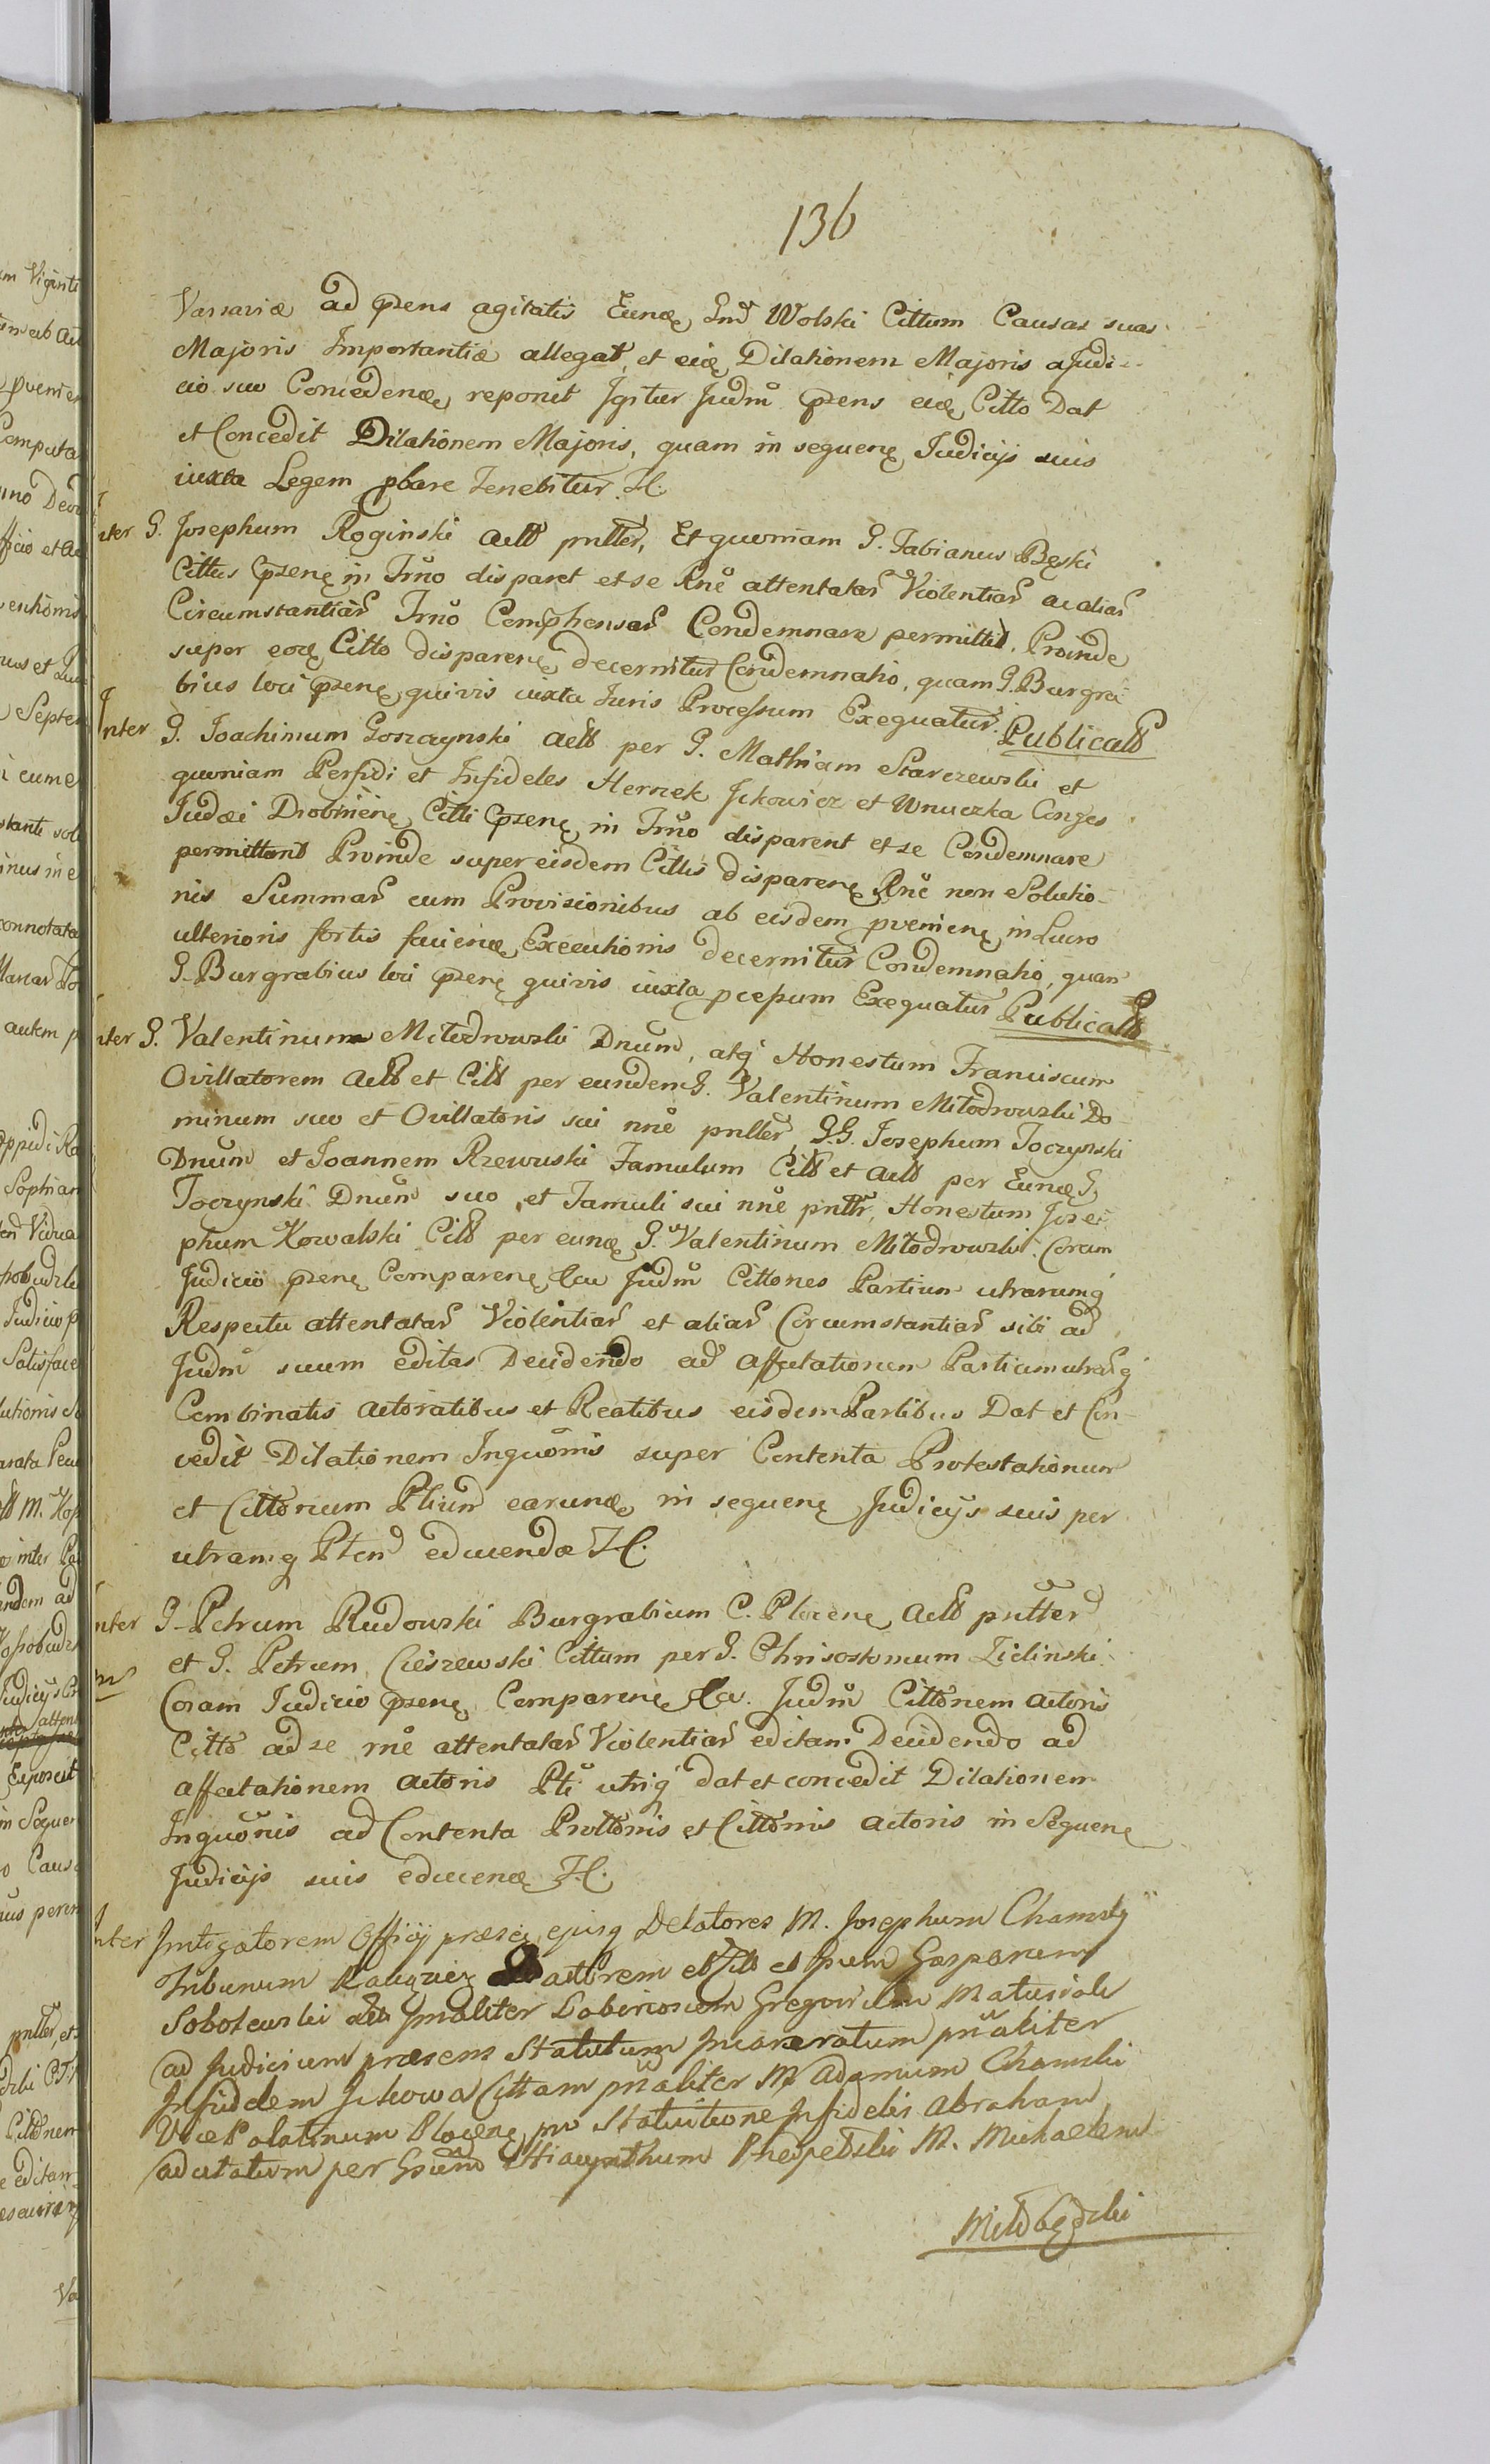 136
Varsaviæ ad pzens agitatis Eunæ Gnd Wolski Cittum Causas suas
Majoris Importantiæ allegat, et eiæ Dilationem Majoris a Judi-
cio suo Concedenæ, reponit Igitur Judm pzens eiæ Citto Dat
et Concedit Dilationem Majoris, quam in sequenę Judicijs suis
iuxta Legem pbare Tenebitur. H.
Inter G. Josephum Roginski actt pntter, Et quoniam G. Fabianus Bęski
Cittus pzenę in Trno disparet et se Rne attentatar Violentiar ac aliar
Circumstantiar Trno Comphensar Condemnare permittit, Proinde
super eoę Citto disparenę decernitur Condemnatio, quam G. Burgra-
bius loci pzenę quivis iuxta Juris Processum Exequatur. Publicatt
Inter G. Joachimum Goszczynski actt per G. Mathiam Starczewski et
quoniam Perfidi et Infideles Herszek Jckowicz et Wnuczka Conges
Judæi Drobinenę Citti pzenę in Trno disparent et se Condemnare
permittunt Proinde super eisdem Cittis disparenę Rne non Solutio-
nis Summar cum Provisionibus ab eisdem pvenienę in Lucro
ulterioris fortis faciendæ Executionis decernitur Condemnatio, quam
G. Burgrabius loci pzenę quivis iuxta pcepum Exequatur Publicatt
Inter G. Valentinum Miłodrowski Dnum, atq Honestum Franciscum
Ovillatorem actt et Citt per eundem G. Valentinum Miłodrowski Do-
minum suo et Ovillatoris sui nne pntter, G.G. Josephum Joczynski
Dnum et Joannem Rzewuski Famulum Citt et actt per Eunæ G.
Joczynski Dnum suo et Famuli sui nne pnttr, Honestum Jose-
phum Kowalski Citt per eunæ G. Valentinum Miłodrowski. Coram
Judicio pzenę Comparenę &a Judm Cittones Partium utrarumq
Respectu attentatar Violentiar et aliar Circumstantiar sibi ad
Judm suum editas Decidendo ad affectationem Partium utrarq
Combinatis actoratibus et Reatibus eisdem Partibus Dat et Con-
cedit Dilationem Inquonis super Contenta Protestationum
et Cittonum Ptium earunæ in sequenę Judicijs suis per
utramq Ptem educenda H.
Inter G. Petrum Rudowski Burgrabium C. Plocenę actt pntter
et G. Petrum Cieszewski Cittum per G. Chrisostomum Zielinski.
Coram Judicio pzenę Comparenę &a. Judm Cittonem actoris
Citto ad se rne attentatar Violentiar editam Decidendo ad
affectationem actoris Pti utriq dat et concedit Dilationem
Inquonis ad Contenta Prottonis et Cittonis actoris in Sequenę
Judicijs suis educenæ H.
Inter Instigatorem Officij præsę ejusq Delatores M. Josephum Chamsky
Tribunum Raciązię actorem et Citt et Gnum Gasparum
Sobolewski Laboriosum Gregorium Matusiak
ad Judicium præsens Statutum Incarceratum pnaliter
Infidelem Jckowa Cittam pnaliter M Adamum Chamski
Vice Palatinum Plocenę pro Statuitione Infidelis Abraham
ad citatum per Gnum Hiacynthum Przedpełski M. Michaelem
Miłobędzki